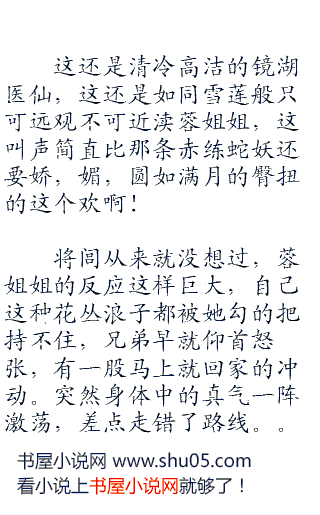 这还是清冷高洁的镜湖
医仙，这还是如同雪莲般只
可远观不可近渎蓉姐姐，这
叫声简直比那条赤练蛇妖还
要娇，媚，圆如满月的臀扭
的这个欢啊！
将闾从来就没想过，蓉
姐姐的反应这样巨大，自己
这种花丛浪子都被她勾的把
持不住，兄弟早就仰首怒
张，有一股马上就回家的冲
动。突然身体中的真气一阵
激荡，差点走错了路线。。
书屋小说网 www.shu05.com
看小说上书屋小说网就够了！